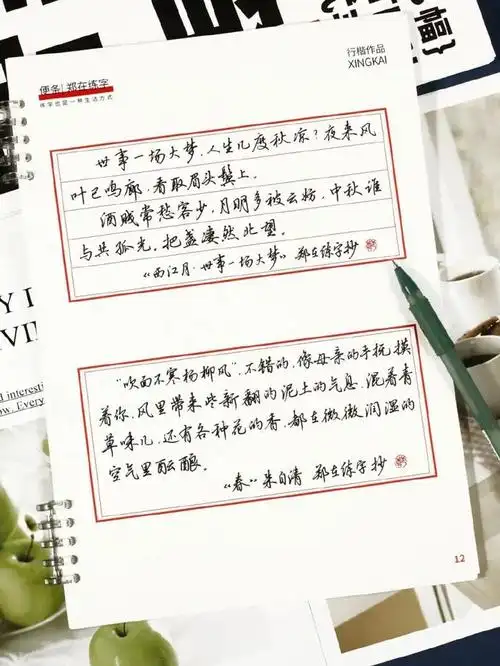 幅
便条|郑在练字
练字也是一种生活方式
行楷作品
XINGKAI
世事一场大梦,人生几度秋凉?夜来风
叶已鸣廊,看取眉头鬓上。
酒贱常愁客少,月明多被云妨。中秋谁
与共孤光,把盏凄然北望。
《西江月·世事一场大梦》郑在练字抄
Y I
"吹面不寒杨柳风",不错的,像母亲的手抚摸
着你,风里带来些新翻的泥土的气息,混着青
草味儿,还有各种花的香,都在微微润湿的
空气里酝酿。
"春"朱自清 郑在练字抄
12